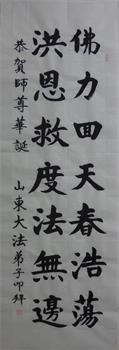 佛力回天春浩蕩
洪恩救度法無邊
恭賀師尊華誕
山東大法弟子叩拜